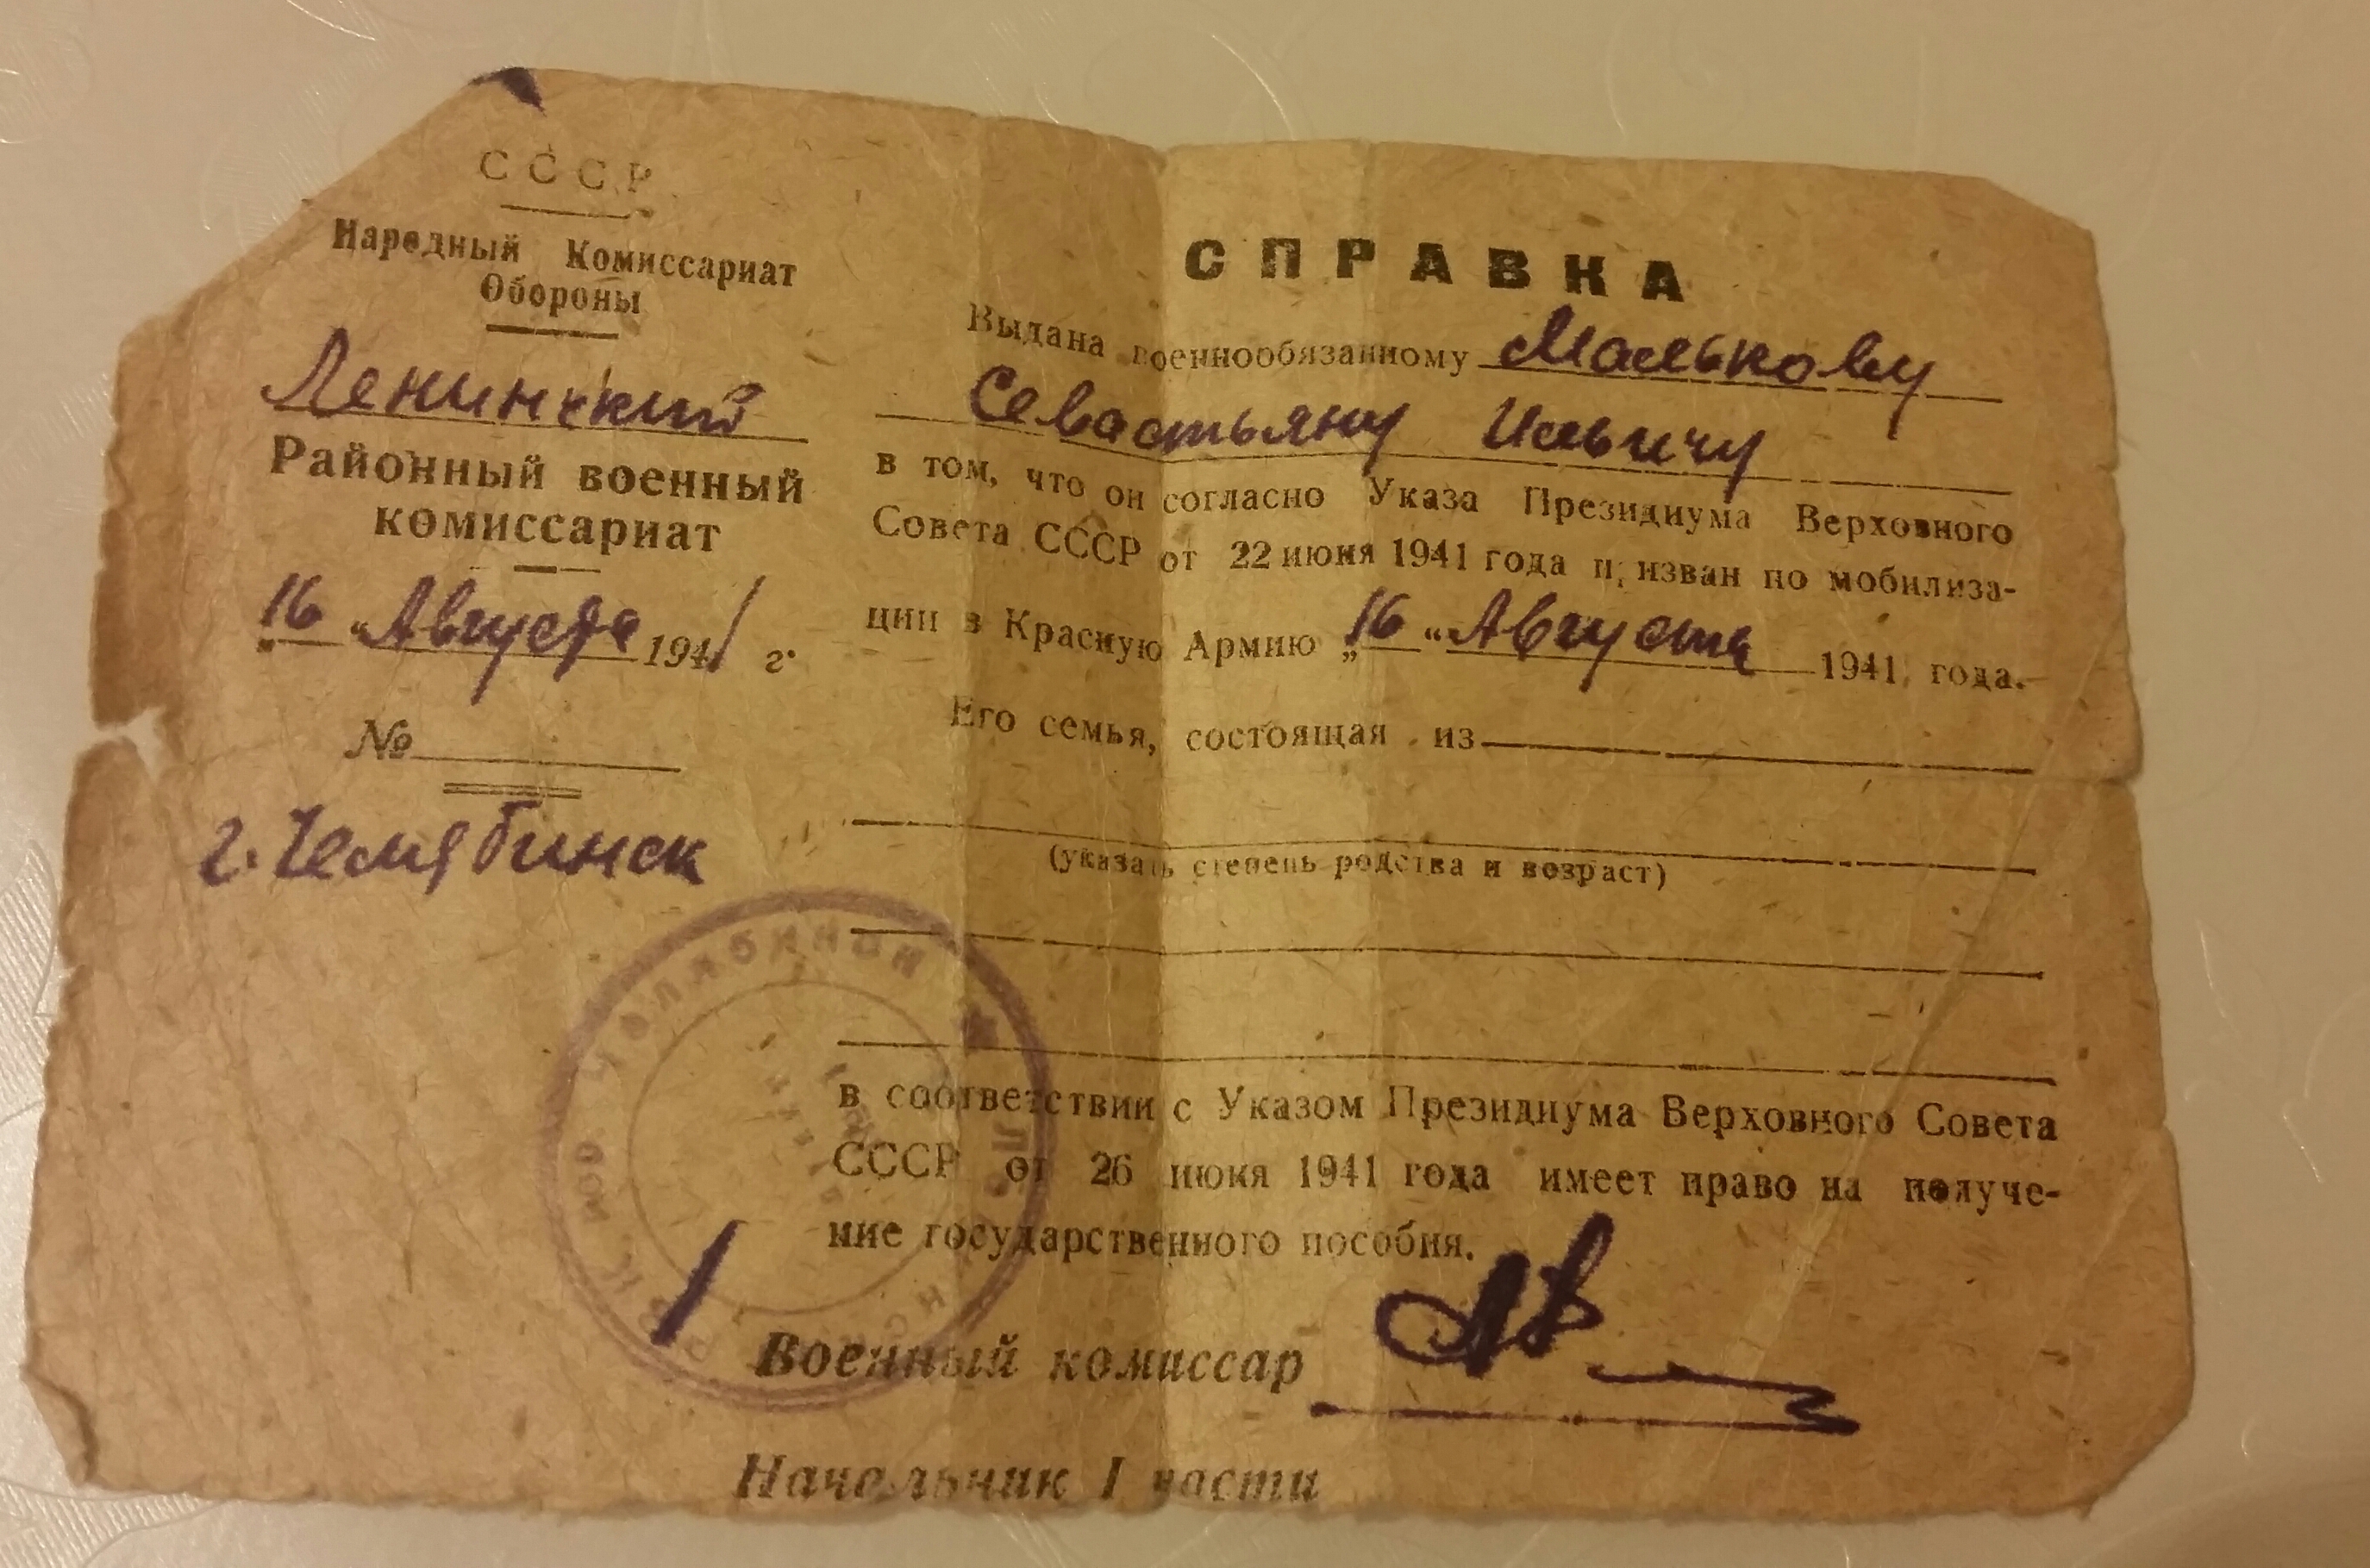 СССР
Народный Комиссариат
Обороны
Ленинский
Районный военный
комиссариат
„16“ Августа 1941 г.
№
г. Челябинск
СПРАВКА
Выдана военнообязанному Малькову
Севастьяну Ильичу
в том, что он согласно Указа Президиума Верховного
Совета СССР от 22 июня 1941 года призван по мобилиза-
ции в Красную Армию „16“ Августа 1941 года.
Его семья, состоящая из
(указать степень родства и возраст)
в соответствии с Указом Президиума Верховного Совета
СССР от 26 июня 1941 года имеет право на получе-
ние государственного пособия.
Военный комиссар
Начальник I части